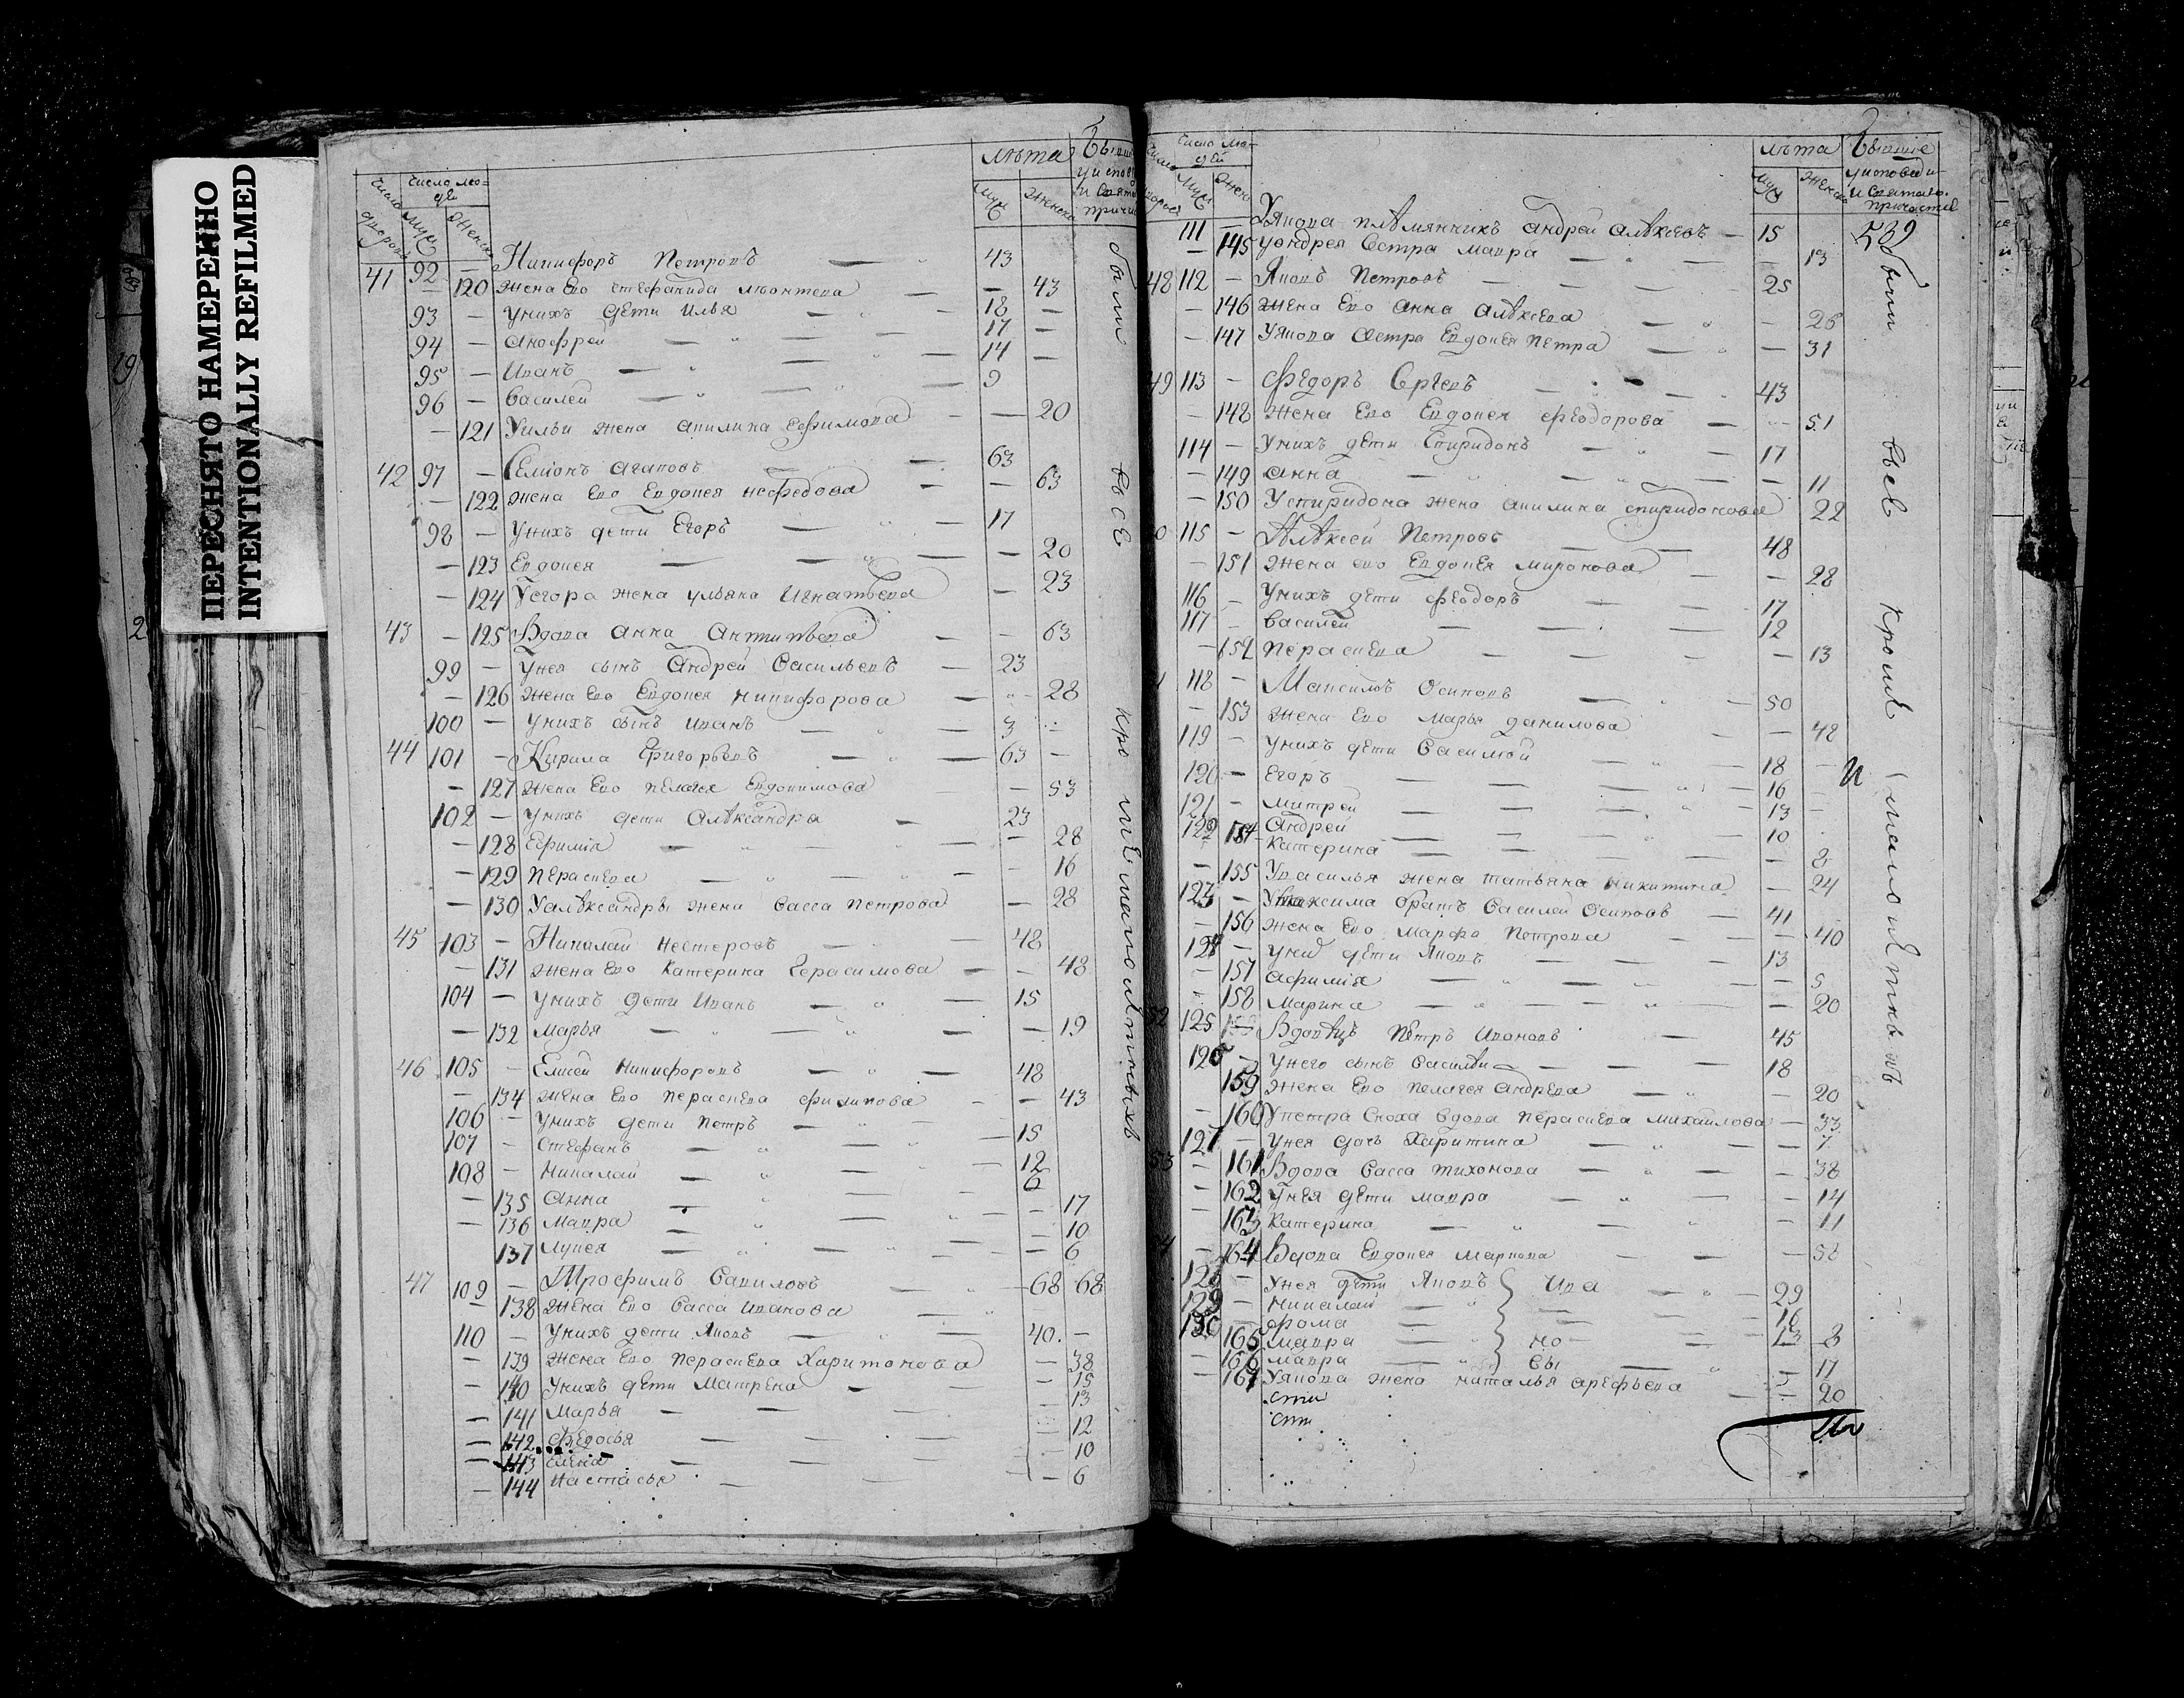 ПЕРЕСНЯТО НАМЕРЕННО
INTENTIONALLY REFILMED
Число дворовъ Число людей Лѣта Бывш
Муж Женск Муж Женска
41 92 — Никифоръ Петровъ — 43
— 120 жена Ево Стефанида — 43
93 — Унихъ дети Илья — 18 —
94 — Анофрей — 17 —
95 — Иванъ — 14 —
96 — Василей — 9
— 121 Уильи жена Акилина Ефимова — 20
42 97 — Семионъ Агаповъ — 63
— 122 жена Ево Евдокея Нефедова — 63
98 — Унихъ дети Егоръ — 17
— 123 Евдокея — 20
— 124 Уегора жена ульяна Игнатьева — 23
43 — 125 Вдова Анна Антипьева — 63
99 — Унея сынъ Андрей Васильевъ — 23
— 126 жена Ево Евдокея Никифорова — 28
100 — Унихъ сынъ Иванъ — 3
44 101 — Кирила Григорьевъ — 63 —
— 127 жена Ево Пелагея Евдокимова — 53
102 — Унихъ дети Алѣксандра — 23
— 128 Ефимія — 28
— 129 Пераскева — 16
— 130 Уалѣксандры жена Васса Петрова — 28
45 103 — Николай Нестеровъ — 48
— 131 жена Ево Катерина Герасимова — 48
104 — Унихъ дети Иванъ — 15
— 132 Марья — 19
46 105 — Елисей Никифоровъ — 48
— 134 жена Ево Пераскева Филипова — 43
106 — Унихъ дети Петръ — 15
107 — Стефанъ — 12
108 — Николай — 6
— 135 Анна — 17
— 136 Мавра — 10
137 Лукея — 6
47 109 — Трофимъ Савиловъ — 68 68
— 138 жена Ево Васса Иванова
110 — Унихъ дети Яковъ — 40 —
— 139 жена Ево Пераскева Харитонова — 38
— 140 Унихъ дети Матрена — 15
— 141 Марья — 13
— 142 Федосья — 12
— 143 Елена — 10
— 144 Настасья — 6
были въсѣ кро мѣ малолѣтныхъ
Число людей Лѣта Бывшіе
Муж Женс Муж Женска уисповеди и Святаго причастия
532
111 — Уякова плѣмянникъ Андрей Алѣксѣевъ — 15
— 145 Уондрея Сестра Мавра — 13
48 112 — Яковъ Петровъ — 25
— 146 жена Ево Анна Алѣксева — 26
— 147 Уякова Сестра Евдокея Петра — 31
49 113 — Федоръ Сергевъ — 43
— 148 жена Ево Евдокея Феодорова — 51
114 — Унихъ дети Спиридонъ — 17
— 149 Анна — 11
— 150 Успиридона жена Акилина Спиридонова 22
0 115 — Алѣксей Петровъ — 48
— 151 жена ево Евдокея Миронова — 28
116 — Унихъ дети Феодоръ — 17
117 — Василей — 12
— 152 Пераскева — 13
118 — Максимъ Осиповъ — 50
— 153 жена Ево Марья Данилова — 48
119 — Унихъ дети Василей — 18 —
120 — Егоръ — 16
121 — Митрей — 13
122 — Андрей — 10
154 Катерина — 8
— 155 Увасилья жена Татьяна Никитина — 24
123 — Умаксима братъ Василей Осиповъ — 41
— 156 жена Ево Марфа Петрова — 40
124 — Унихъ дети Яковъ — 13
— 157 Афимія — 5
158 Марина — 20
125 — Вдовѣцъ Петръ Ивановъ — 45
126 — Унего сынъ Василѣи — 18
159 жена Ево Пелагея Андрева — 20
— 160 Упетра Сноха Вдова Пераскева Михайлова — 33
127 — Унея дочь Харитина — 7
— 161 Вдова Васса Тихонова — 38
— 162 Унея дети Мавра — 14
— 163 Катерина — 11
— 164 Вдова Евдокея Маркова — 58
128 — Унея дети Яковъ } Ива — 29
129 — Николай — 16
130 — Фома — 13
165 Мавра — но — 8
— 166 Мавра — вы — 17
— 167 Уякова жена Наталья Арефьева — 20
были въсѣ кромѣ малолѣтныхъ